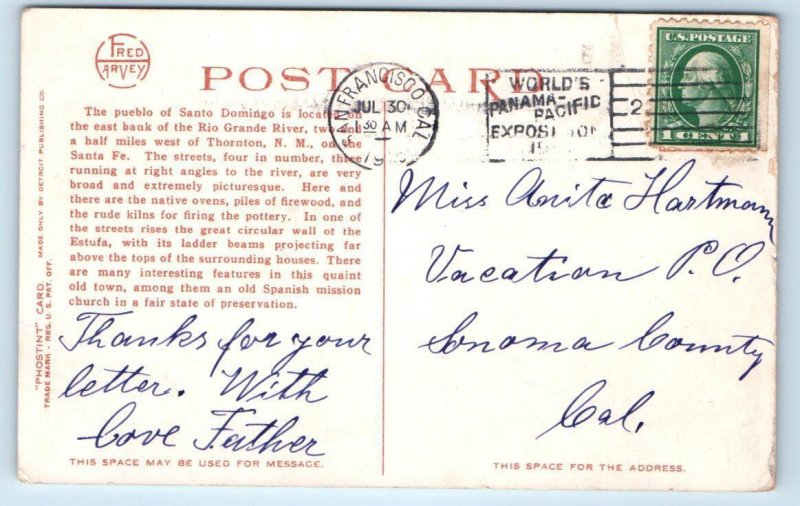 FRED
HARVEY
POST CARD
The pueblo of Santo Domingo is located on
the east bank of the Rio Grande River, two and
a half miles west of Thornton, N. M., on the
Santa Fe. The streets, four in number, three
running at right angles to the river, are very
broad and extremely picturesque. Here and
there are the native ovens, piles of firewood, and
the rude kilns for firing the pottery. In one of
the streets rises the great circular wall of the
Estufa, with its ladder beams projecting far
above the tops of the surrounding houses. There
are many interesting features in this quaint
old town, among them an old Spanish mission
church in a fair state of preservation.
"PHOSTINT" CARD. MADE ONLY BY DETROIT PUBLISHING CO.
TRADE MARK - REG. U.S. PAT. OFF.
Thanks for your
letter. With
Love Father
THIS SPACE MAY BE USED FOR MESSAGE.
SAN FRANCISCO CAL
JUL 30
30 AM
WORLD'S
PANAMA-
PACIFIC
EXPOSITION
2
U.S. POSTAGE
1 CENT 1
Miss Anita Hartmann
Vacation P.O.
Sonoma County
Cal.
THIS SPACE FOR THE ADDRESS.